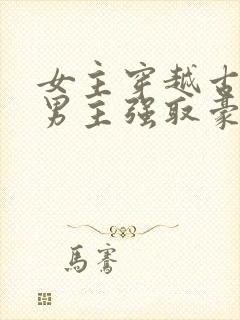 女主穿越古
男主强取豪
馬騫